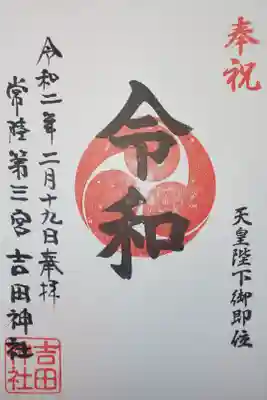 奉祝
天皇陛下御即位
令和
令和二年二月十九日奉拝
常陸第三宮吉田神社
吉田
神社